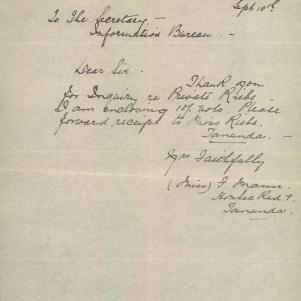 Sept. 10th
To The Secretary -
Information Bureau. -
Dear Sir.
Thank you
for Inquiry re Private Riebe -
I am enclosing 10/- note. Please
forward receipt to Miss Riebe.
Tanunda. -
Yrs Faithfally
(Miss) I. Mann.
Tanunda.